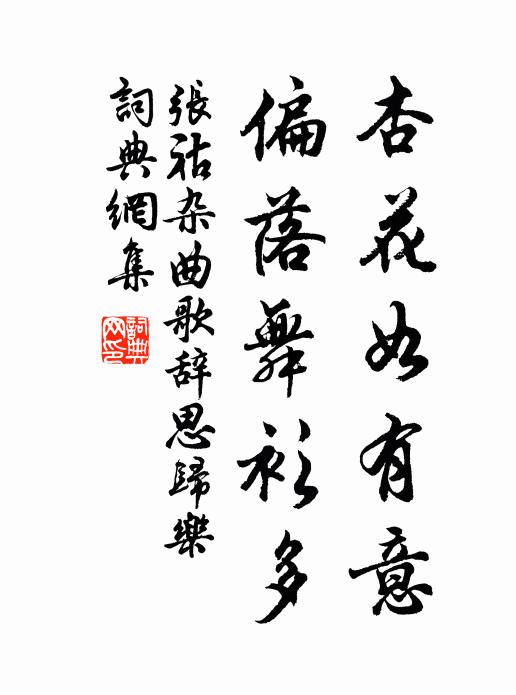 杏花如有意
偏落舞衫多
張祜杂曲歌辞思歸樂
詞典網集
詞典网印